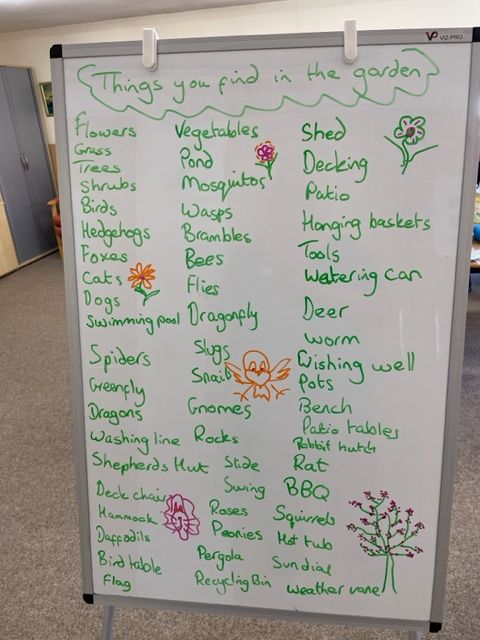 VIZ-PRO
Things you find in the garden
Flowers
Grass
Trees
Shrubs
Birds
Hedgehogs
Foxes
Cats
Dogs
Swimming pool
Spiders
Greenfly
Dragons
Washing line
Shepherds Hut
Deck chair
Hammock
Daffodils
Bird table
Flag
Vegetables
Pond
Mosquitos
Wasps
Brambles
Bees
Flies
Dragonfly
Slugs
Snails
Gnomes
Rocks
Slide
Swing
Roses
Peonies
Pergola
Recycling Bin
Shed
Decking
Patio
Hanging baskets
Tools
Watering can
Deer
Worm
Wishing well
Pots
Bench
Patio tables
Rabbit hutch
Rat
BBQ
Squirrels
Hot tub
Sundial
Weather vane